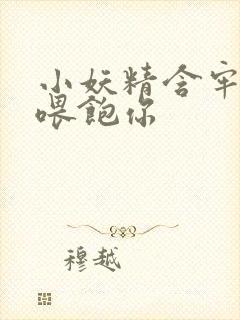 小妖精含牢
喂飽你
穆越